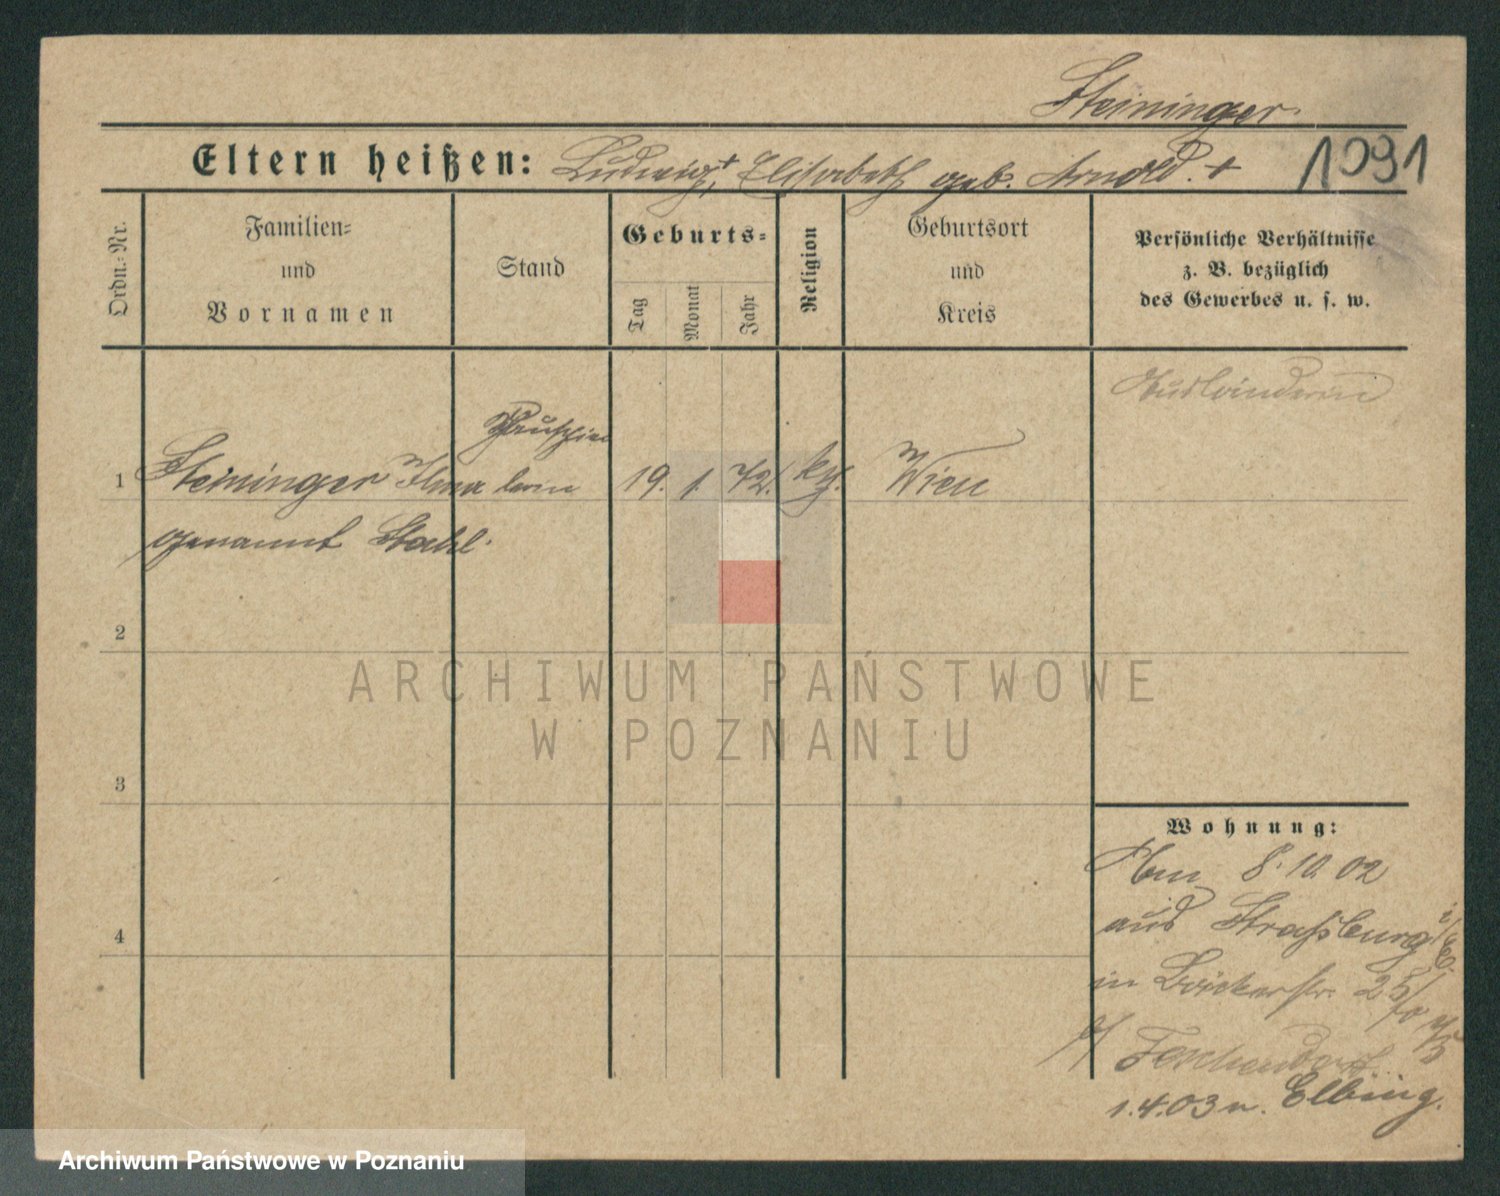 Steininger.
Eltern heißen: Ludwig +, Elisabeth geb. Arnold. +
1091
Ordn.-Nr.
Familien-
und
Vornamen
Stand
Geburts-
Tag
Monat
Jahr
Religion
Geburtsort
und
Kreis
Persönliche Verhältnisse
z. B. bezüglich
des Gewerbes u. s. w.
Ausländerin
Schauspie
1 Steininger Ilma lerin 19. 1. 72. kth. Wien
genannt Stahl.
2
ARCHIWUM PAŃSTWOWE
W POZNANIU
3
Wohnung:
8.10.02
aus Strassburg
in Bäckerstr. 25
4
1.4.03 n. Elbing.
Archiwum Państwowe w Poznaniu